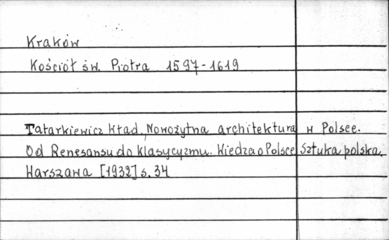 Kraków
Kościół św. Piotra 1597-1619
Tatarkiewicz Wład. Nowożytna architektura w Polsce.
Od Renesansu do klasycyzmu. Wiedza o Polsce Sztuka polska.
Warszawa [1932] s. 34